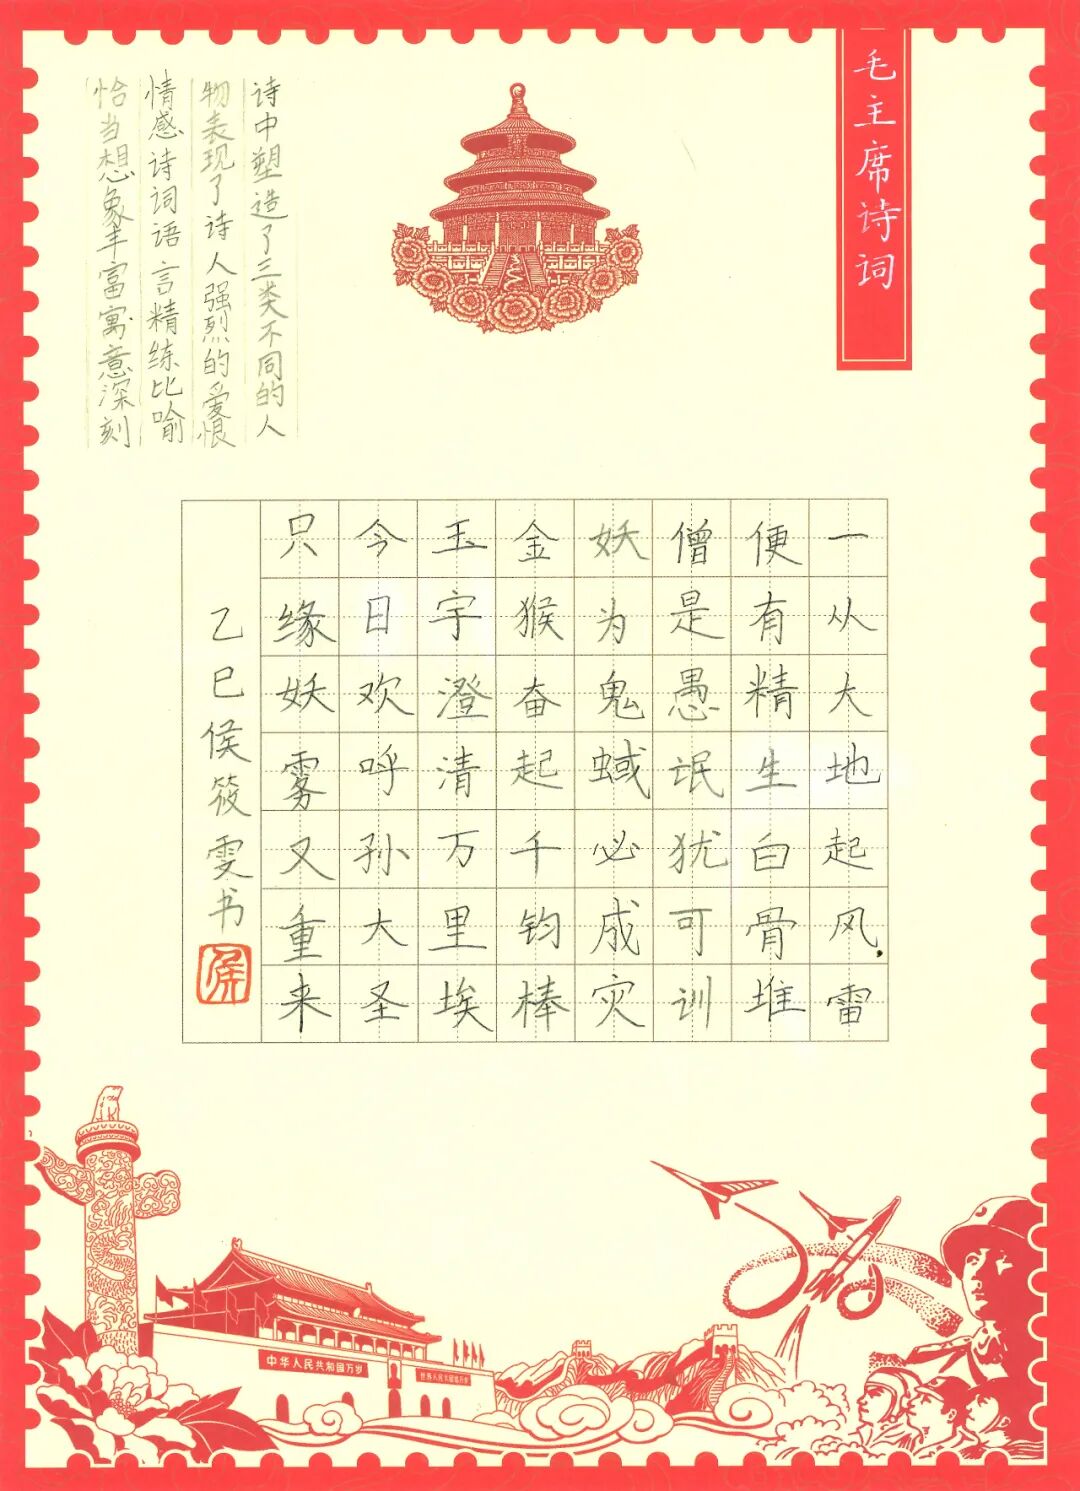 毛主席诗词
诗中塑造了三类不同的人
物表现了诗人强烈的爱恨
情感诗词语言精练比喻
恰当想象丰富寓意深刻
一从大地起风雷
便有精生白骨堆
僧是愚氓犹可训
妖为鬼蜮必成灾
金猴奋起千钧棒
玉宇澄清万里埃
今日欢呼孙大圣
只缘妖雾又重来
乙巳侯筱雯书
侯
中华人民共和国万岁
世界人民大团结万岁